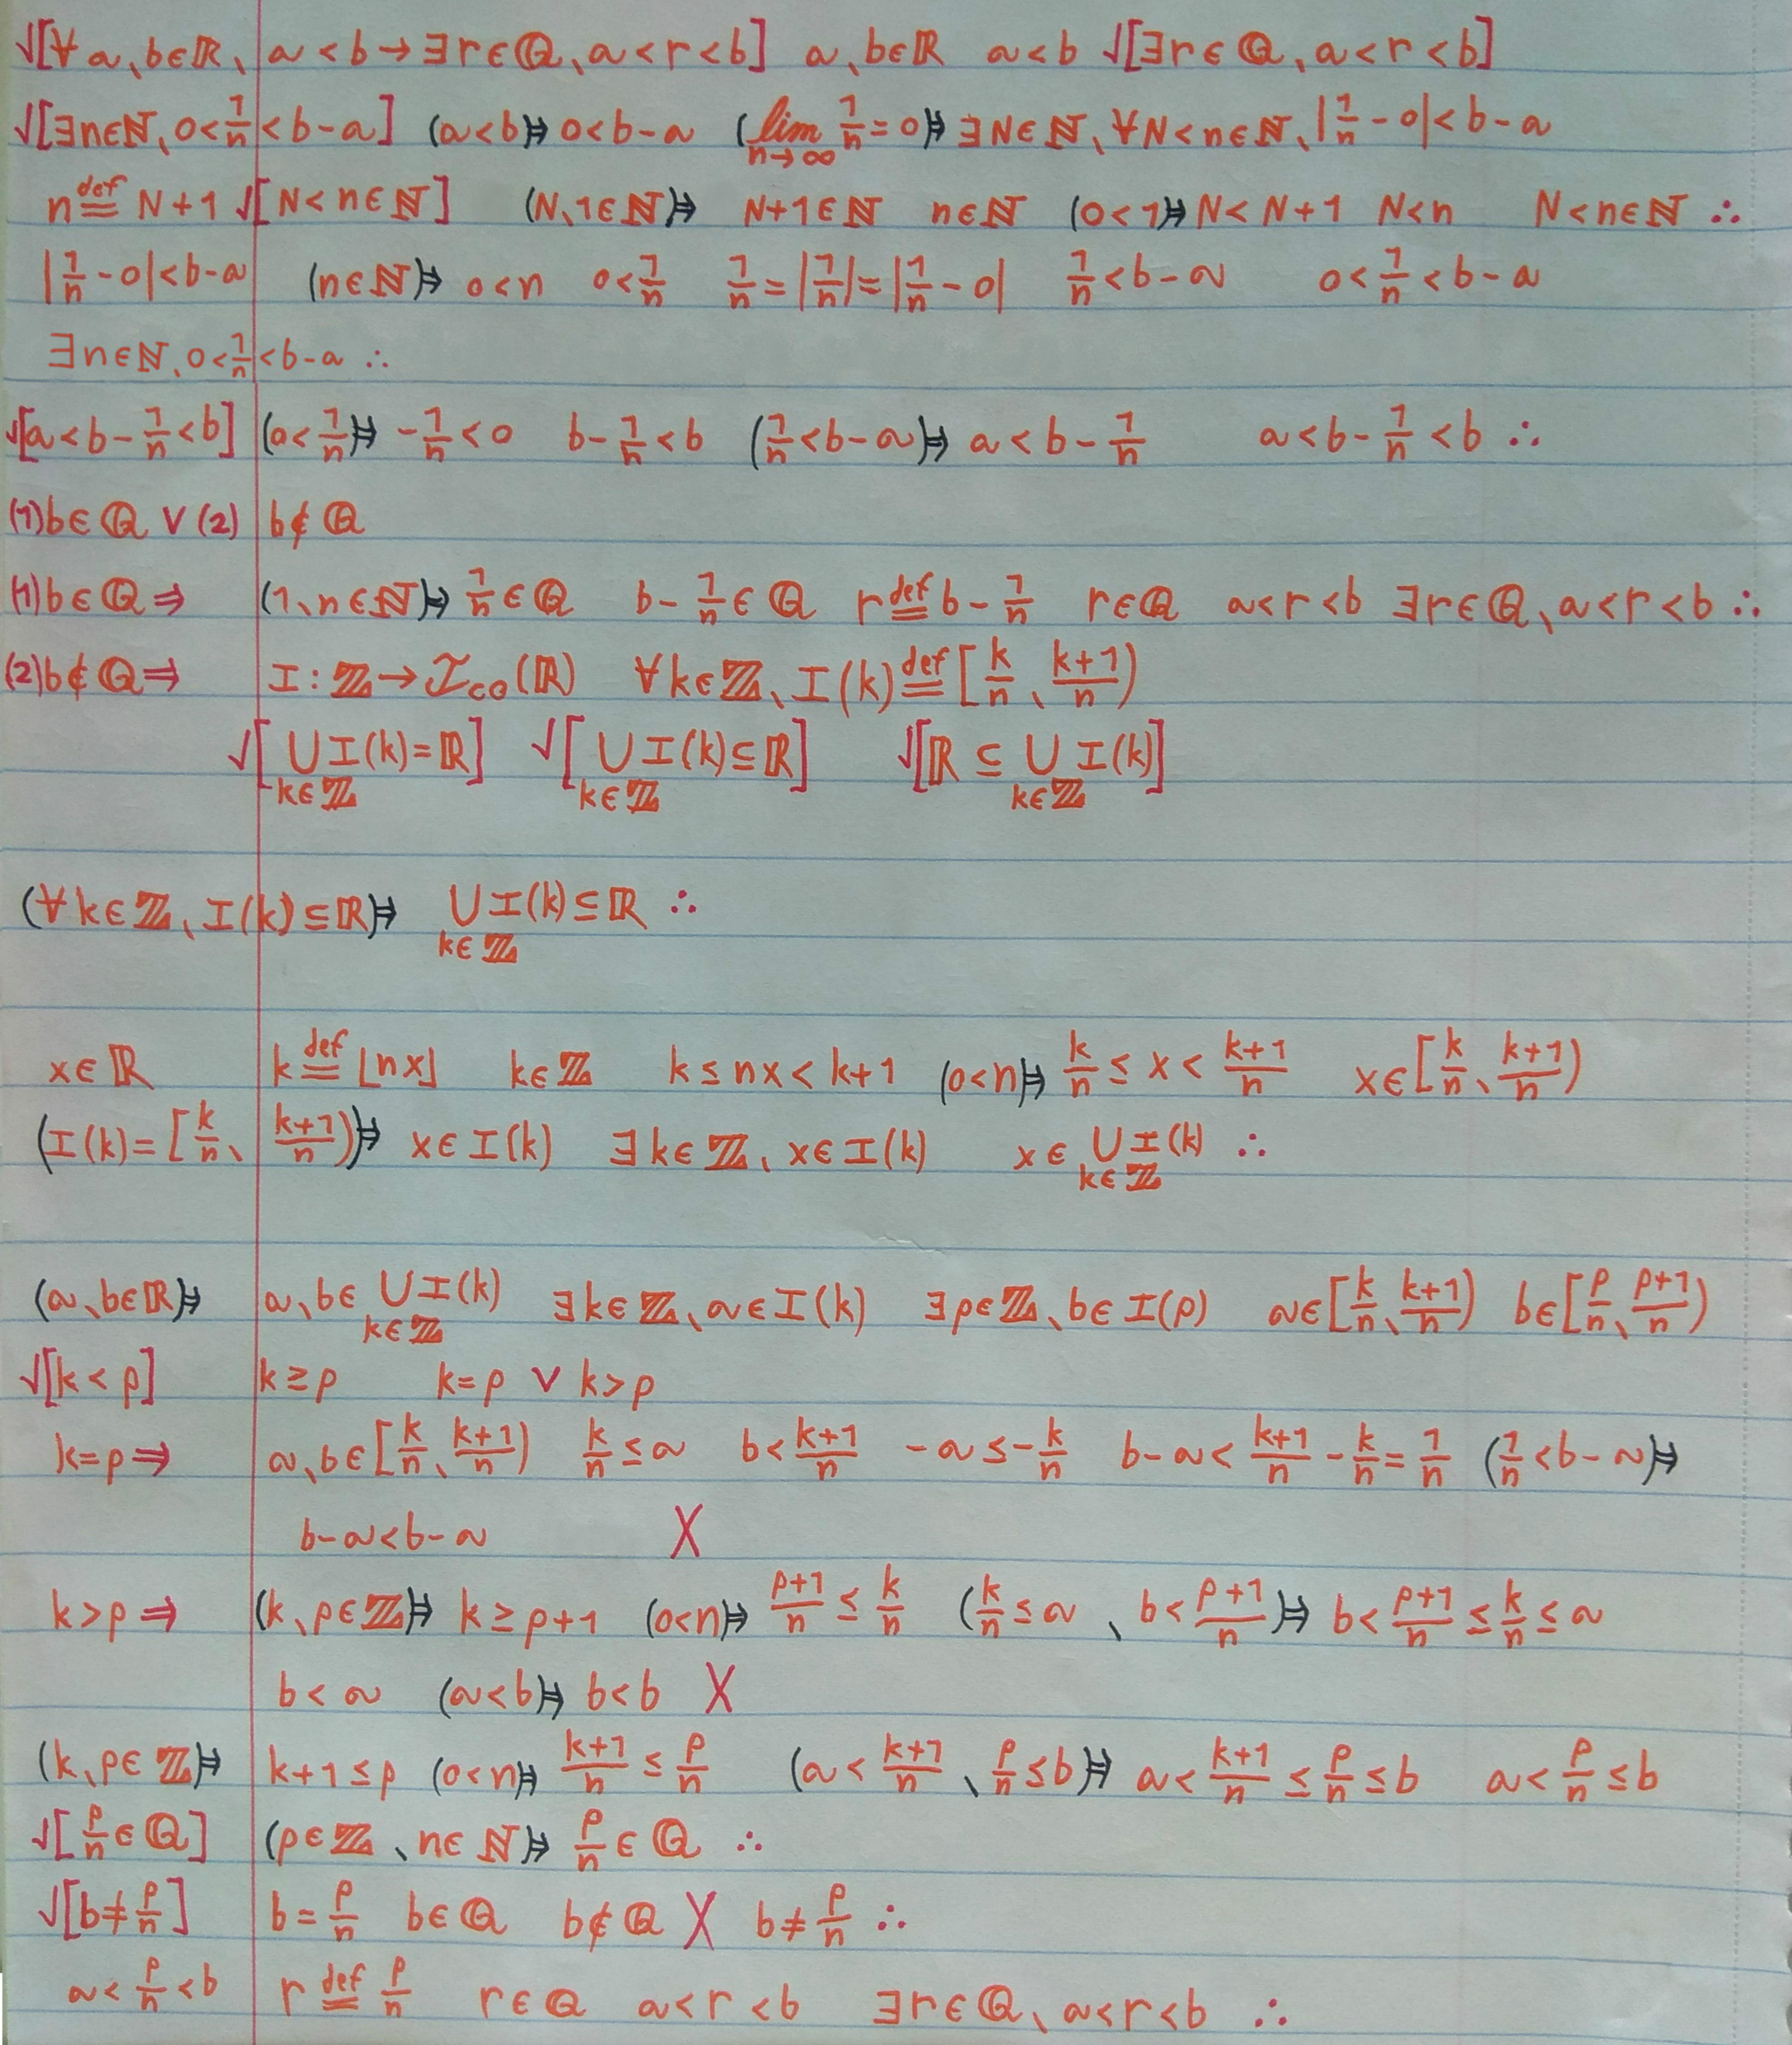 √[∀a、b∈ℝ、a<b→∃r∈ℚ、a<r<b] a、b∈ℝ a<b √[∃r∈ℚ、a<r<b]
√[∃n∈ℕ、0<1/n<b-a] (a<b)⇒ 0<b-a (lim n→∞ 1/n=0)⇒ ∃N∈ℕ、∀N<n∈ℕ、|1/n-0|<b-a
n def= N+1 √[N<n∈ℕ] (N、1∈ℕ)⇒ N+1∈ℕ n∈ℕ (0<1)⇒ N<N+1 N<n N<n∈ℕ ∴
|1/n-0|<b-a (n∈ℕ)⇒ 0<n 0<1/n 1/n=|1/n|=|1/n-0| 1/n<b-a 0<1/n<b-a
∃n∈ℕ、0<1/n<b-a ∴
√[a<b-1/n<b] (0<1/n)⇒ -1/n<0 b-1/n<b (1/n<b-a)⇒ a<b-1/n a<b-1/n<b ∴
(1)b∈ℚ ∨ (2) b∉ℚ
(1)b∈ℚ ⇒ (1、n∈ℕ)⇒ 1/n∈ℚ b-1/n∈ℚ r def= b-1/n r∈ℚ a<r<b ∃r∈ℚ、a<r<b ∴
(2)b∉ℚ ⇒ I:ℤ→ℐco(ℝ) ∀k∈ℤ、I(k) def= [k/n、(k+1)/n)
√[∪k∈ℤ I(k)=ℝ] √[∪k∈ℤ I(k)⊆ℝ] √[ℝ⊆∪k∈ℤ I(k)]
(∀k∈ℤ、I(k)⊆ℝ)⇒ ∪k∈ℤ I(k)⊆ℝ ∴
x∈ℝ k def= ⌊nx⌋ k∈ℤ k≤nx<k+1 (0<n)⇒ k/n≤x<(k+1)/n x∈[k/n、(k+1)/n)
(I(k)=[k/n、(k+1)/n))⇒ x∈I(k) ∃k∈ℤ、x∈I(k) x∈∪k∈ℤ I(k) ∴
(a、b∈ℝ)⇒ a、b∈∪k∈ℤ I(k) ∃k∈ℤ、a∈I(k) ∃p∈ℤ、b∈I(p) a∈[k/n、(k+1)/n) b∈[p/n、(p+1)/n)
√[k<p] k≥p k=p ∨ k>p
k=p ⇒ a、b∈[k/n、(k+1)/n) k/n≤a b<(k+1)/n -a≤-k/n b-a<(k+1)/n-k/n=1/n (1/n<b-a)⇒
b-a<b-a X
k>p ⇒ (k、p∈ℤ)⇒ k≥p+1 (0<n)⇒ (p+1)/n≤k/n (k/n≤a、b<(p+1)/n)⇒ b<(p+1)/n≤k/n≤a
b<a (a<b)⇒ b<b X
(k、p∈ℤ)⇒ k+1≤p (0<n)⇒ (k+1)/n≤p/n (a<(k+1)/n、p/n≤b)⇒ a<(k+1)/n≤p/n≤b a<p/n≤b
√[p/n∈ℚ] (p∈ℤ、n∈ℕ)⇒ p/n∈ℚ ∴
√[b≠p/n] b=p/n b∈ℚ b∉ℚ X b≠p/n ∴
a<p/n<b r def= p/n r∈ℚ a<r<b ∃r∈ℚ、a<r<b ∴